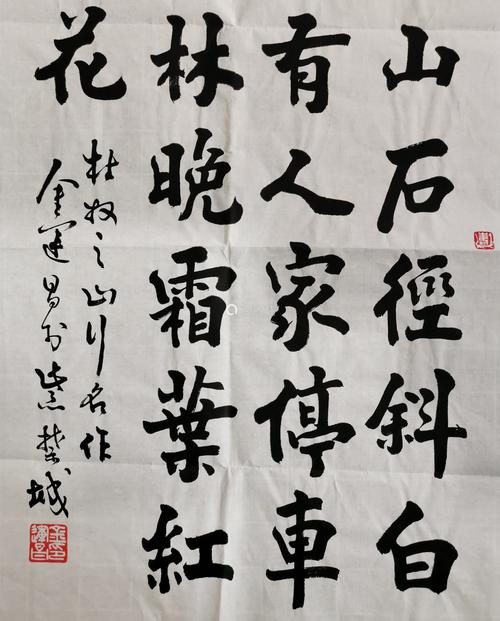 山石徑斜白
有人家停車
林晚霜葉紅
花
杜牧之山行名作
金運昌於紫禁城